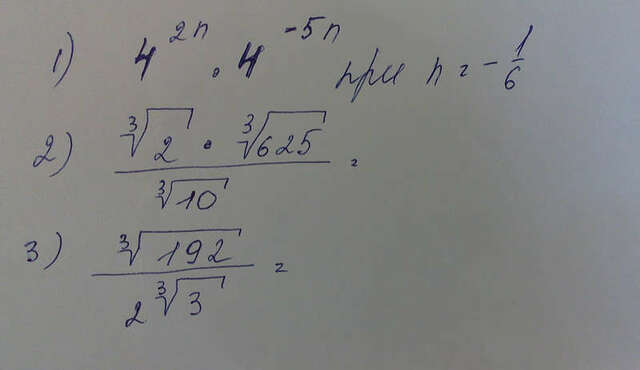 1) 4^{2n} · 4^{-5n} при n = -\frac{1}{6}
2) \frac{\sqrt[3]{2} · \sqrt[3]{625}}{\sqrt[3]{10}} =
3) \frac{\sqrt[3]{192}}{2\sqrt[3]{3}} =